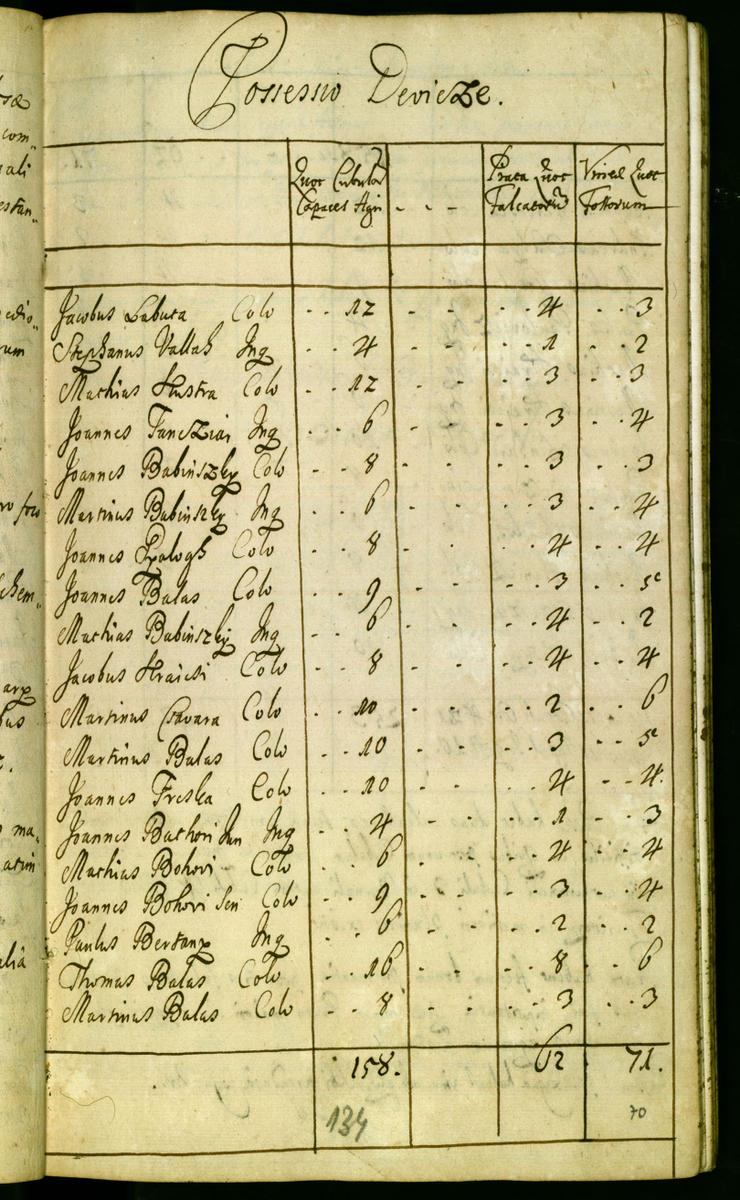 Possessio Devicze.
Quot Cubulor Prata Quot Vineae Quot
Capaces Agri - - - Falcatorum Fossorum
Jacobus Labuta Colo - - 12 - - - - 4 - - 3
Stephanus Vallah Inq - - 4 - - - - 1 - - 2
Mathias Hustra Colo - - 12 - - - - 3 - - 3
Joannes Fancziai Inq - - 6 - - - - 3 - - 4
Joannes Babinszky Colo - - 8 - - - - 3 - - 3
Martinus Babinszky Inq - - 6 - - - - 3 - - 4
Joannes Balogh Colo - - 8 - - - - 4 - - 4
Joannes Balas Colo - - 9 - - - - 3 - - 5
Mathias Babinszky Inq - - 6 - - - - 4 - - 2
Jacobus Hraicsi Colo - - 8 - - - - 4 - - 4
Martinus Csavara Colo - - 10 - - - - 2 - - 6
Martinus Balas Colo - - 10 - - - - 3 - - 5
Joannes Freska Colo - - 10 - - - - 4 - - 4.
Joannes Bathori Jun Inq - - 4 - - - - 1 - - 3
Mathias Bohori Colo - - 6 - - - - 4 - - 4
Joannes Bohori Sen Colo - - 9 - - - - 3 - - 4
Paulus Bertany Inq - - 6 - - - - 2 - - 2
Thomas Balas Colo - - 16 - - - - 8 - - 6
Martinus Balas Colo - - 8 - - - - 3 - - 3
158. 62 71.
134 70